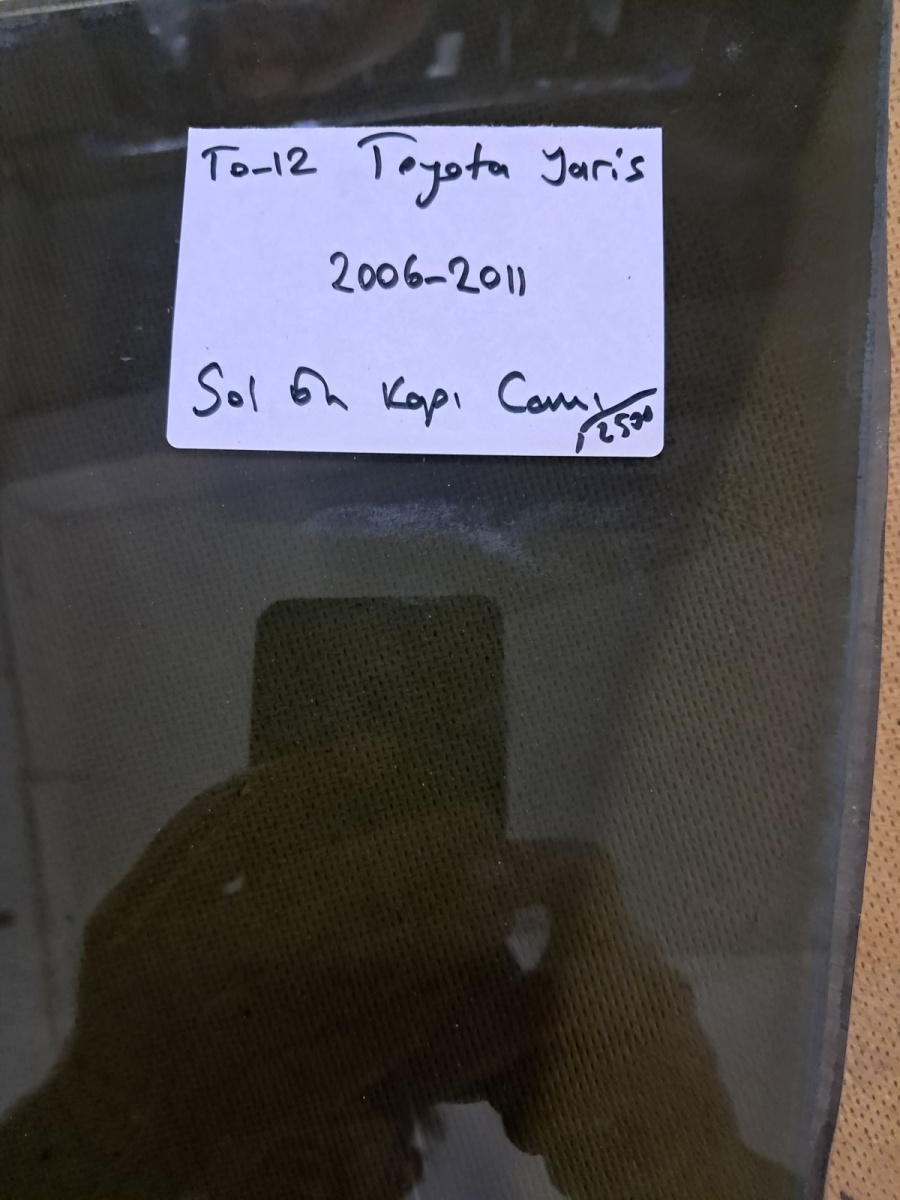 To-12 Toyota Yaris
2006-2011
Sol Ön Kapı Camı
2500